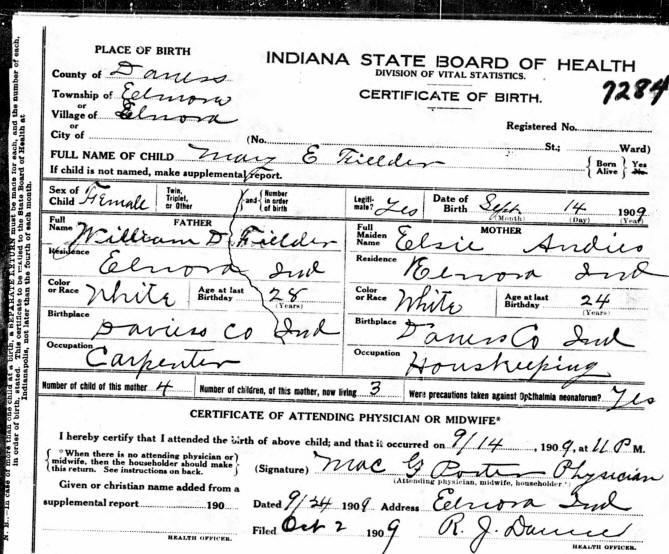 PLACE OF BIRTH
INDIANA STATE BOARD OF HEALTH
DIVISION OF VITAL STATISTICS.
CERTIFICATE OF BIRTH.
7284
County of Daviess
Township of Elmore
or
Village of Elnora
or
City of
Registered No.
(No. St.; Ward)
FULL NAME OF CHILD Mary E Fielder
{ Born Alive } Yes No
If child is not named, make supplemental report.
Sex of Child Female
Twin, Triplet, or Other
{ and } { Number in order of birth
Legitimate? Yes
Date of Birth Sept 14 1909
(Month) (Day) (Year)
FATHER
Full Name William D. Fielder
Residence Elnora Ind
Color or Race White
Age at last Birthday 28
(Years)
Birthplace Daviess Co Ind
Occupation Carpenter
MOTHER
Full Maiden Name Elsie
Residence Elnora Ind
Color or Race White
Age at last Birthday 24
(Years)
Birthplace Daviess Co Ind
Occupation Houskeeping
Number of child of this mother 4
Number of children, of this mother, now living 3
Were precautions taken against Ophthalmia neonatorum? Yes
CERTIFICATE OF ATTENDING PHYSICIAN OR MIDWIFE*
I hereby certify that I attended the birth of above child; and that it occurred on 9/14, 1909, at 11 P M.
{ *When there is no attending physician or
midwife, then the householder should make
this return. See instructions on back. }
(Signature) Mac G Porter Physician
(Attending physician, midwife, householder.)
Given or christian name added from a
supplemental report 190
HEALTH OFFICER.
Dated 9/24 1909 Address Elnora Ind
Filed Oct 2 1909 R. J.
HEALTH OFFICER.
N. B.—In case of more than one child at a birth, a SEPARATE RETURN must be made for each, and the number of each,
in order of birth, stated. This certificate to be mailed to the State Board of Health at
Indianapolis, not later than the fourth of each month.